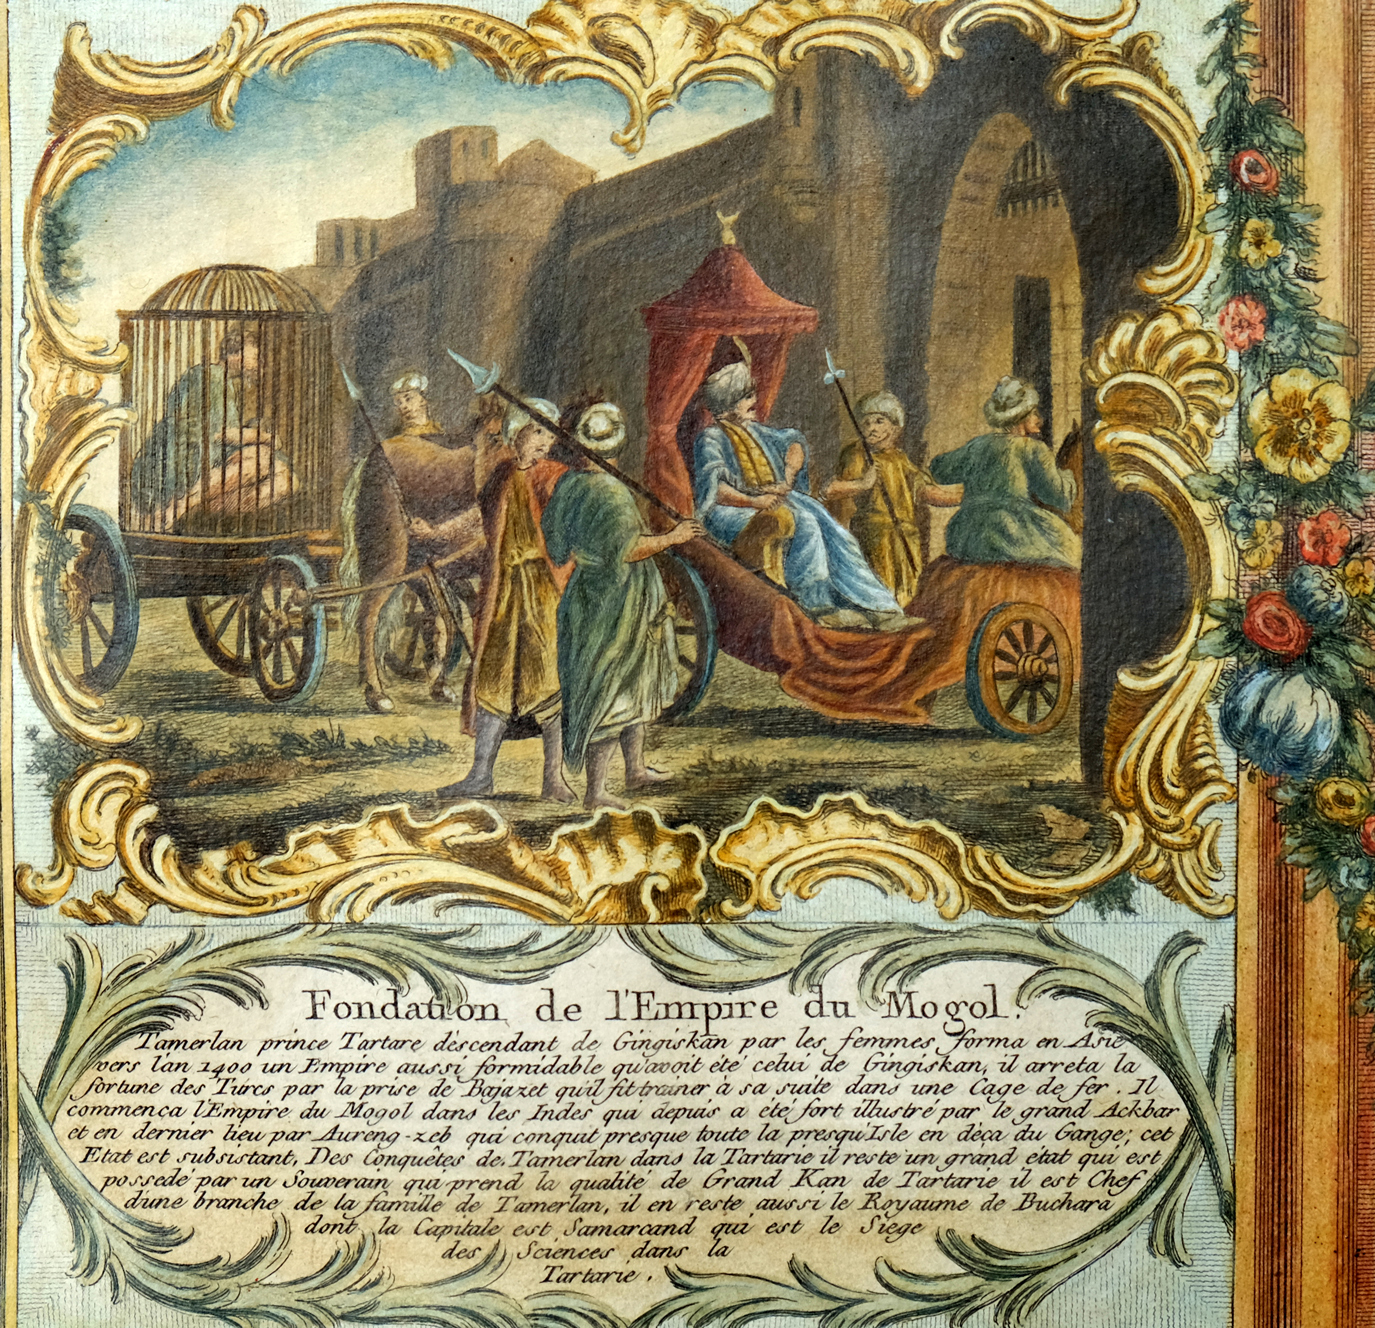 Fondation de l'Empire du Mogol.
Tamerlan prince Tartare dèscendant de Gingiskan par les femmes forma en Asie
vers l'an 1400 un Empire aussi formidable qu'avoit été celui de Gingiskan, il arreta la
fortune des Turcs par la prise de Bajazet qu'il fit trainer à sa suite dans une Cage de fer. Il
commença l'Empire du Mogol dans les Indes qui depuis a eté fort illustré par le grand Ackbar
et en dernier lieu par Aureng-zeb qui conquit presque toute la presqu'Isle en deça du Gange; cet
Etat est subsistant. Des Conquêtes de Tamerlan dans la Tartarie il reste un grand etat qui est
possedé par un Souverain qui prend la qualité de Grand Kan de Tartarie il est Chef
d'une branche de la famille de Tamerlan, il en reste aussi le Royaume de Buchara
dont la Capitale est Samarcand qui est le Siege
des Sciences dans la
Tartarie.